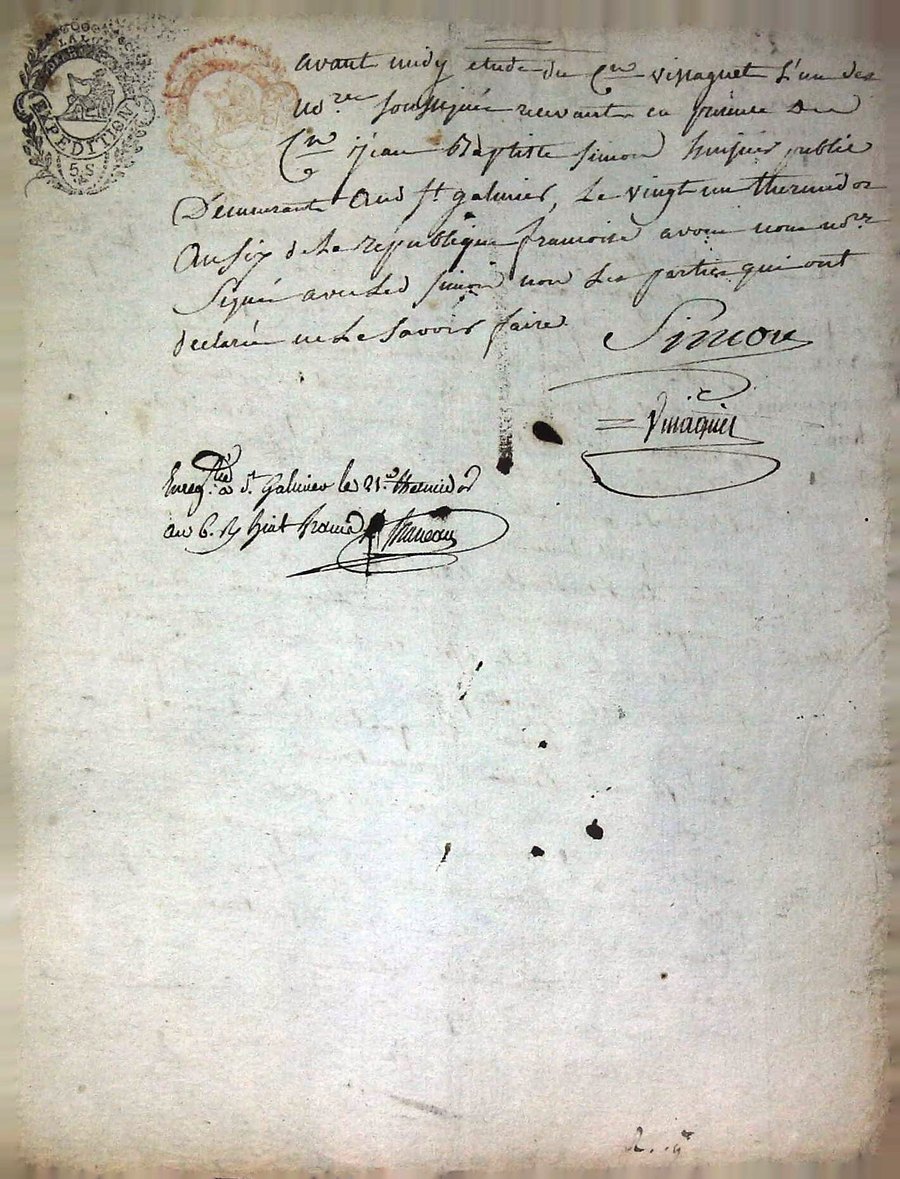 LA LOI
EXPEDITION
5.S
avant midy etude du Cen vissaguet L'un des
no.res soussignés recevant en présence du
Cen jean Baptiste simon huissier public
Demeurant aud st galmier, Le vingt un thermidor
an six de La republique francoise avons nous no.re
signé avec Led simon non Les parties qui ont
declaré ne Le savoir faire
Simon
Vissaguet
Enregtré à st. Galmier le 21.e thermidor
an 6. Ry huit francs